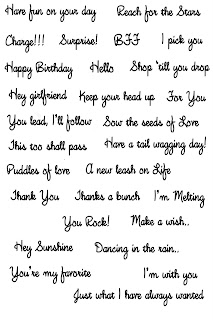 Have fun on your day Reach for the Stars
Charge!!! Surprise! BFF I pick you
Happy Birthday Hello Shop 'till you drop
Hey girlfriend Keep your head up For You
You lead, I'll follow Sow the seeds of Love
This too shall pass Have a tail wagging day!
Puddles of love A new leash on Life
Thank You Thanks a bunch I'm Melting
You Rock! Make a wish..
Hey Sunshine Dancing in the rain..
You're my favorite I'm with you
Just what I have always wanted